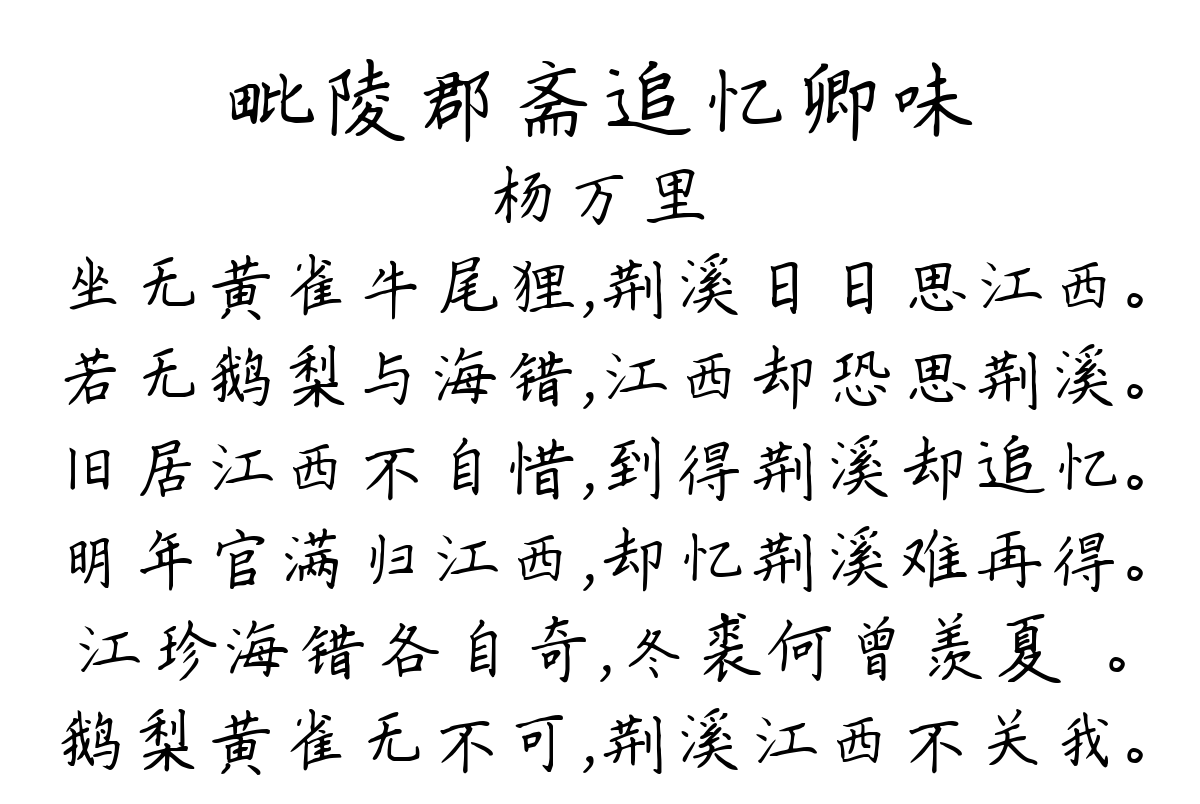 毗陵郡斋追忆卿味
杨万里
坐无黄雀牛尾狸,荆溪日日思江西。
若无鹅梨与海错,江西却恐思荆溪。
旧居江西不自惜,到得荆溪却追忆。
明年官满归江西,却忆荆溪难再得。
江珍海错各自奇,冬裘何曾羡夏 。
鹅梨黄雀无不可,荆溪江西不关我。